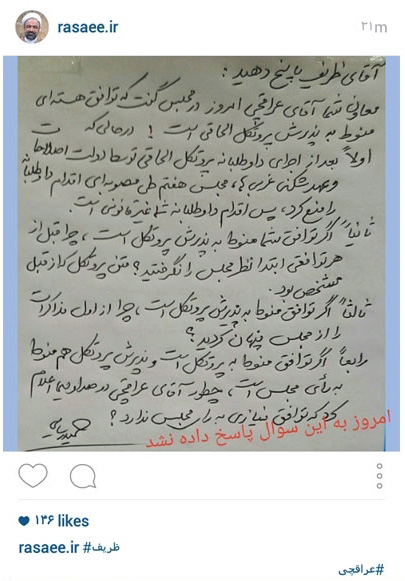 rasaee.ir
۳۱m
آقای ظریف پاسخ دهید :
معاون شما آقای عراقچی امروز در مجلس گفت که توافق هسته‌ای
منوط به پذیرش پروتکل الحاقی است ! درحالی که
اولاً بعد از اجرای داوطلبانه پروتکل الحاقی توسط دولت اصلاحات
و عهدشکنی غربی‌ها، مجلس هفتم طی مصوبه‌ای اقدام داوطلبانه
را منع کرد، پس اقدام داوطلبانه شما غیرقانونی است.
ثانیاً اگر توافق شما منوط به پذیرش پروتکل است ، چرا قبل از
هر توافقی ابتدا نظر مجلس را نگرفتید؟ متن پروتکل که از قبل
مشخص بود.
ثالثاً اگر توافق منوط به پذیرش پروتکل است ، چرا از اول مذاکرات
را از مجلس پنهان کردید؟
رابعاً اگر توافق منوط به پروتکل است و پذیرش پروتکل هم منوط
به رأی مجلس است ، چطور آقای عراقچی در صداوسیما اعلام
کرد که توافق نیازی به رای مجلس ندارد؟
امروز به این سوال پاسخ داده نشد
۱۳۶ likes
rasaee.ir #ظریف
#عراقچی